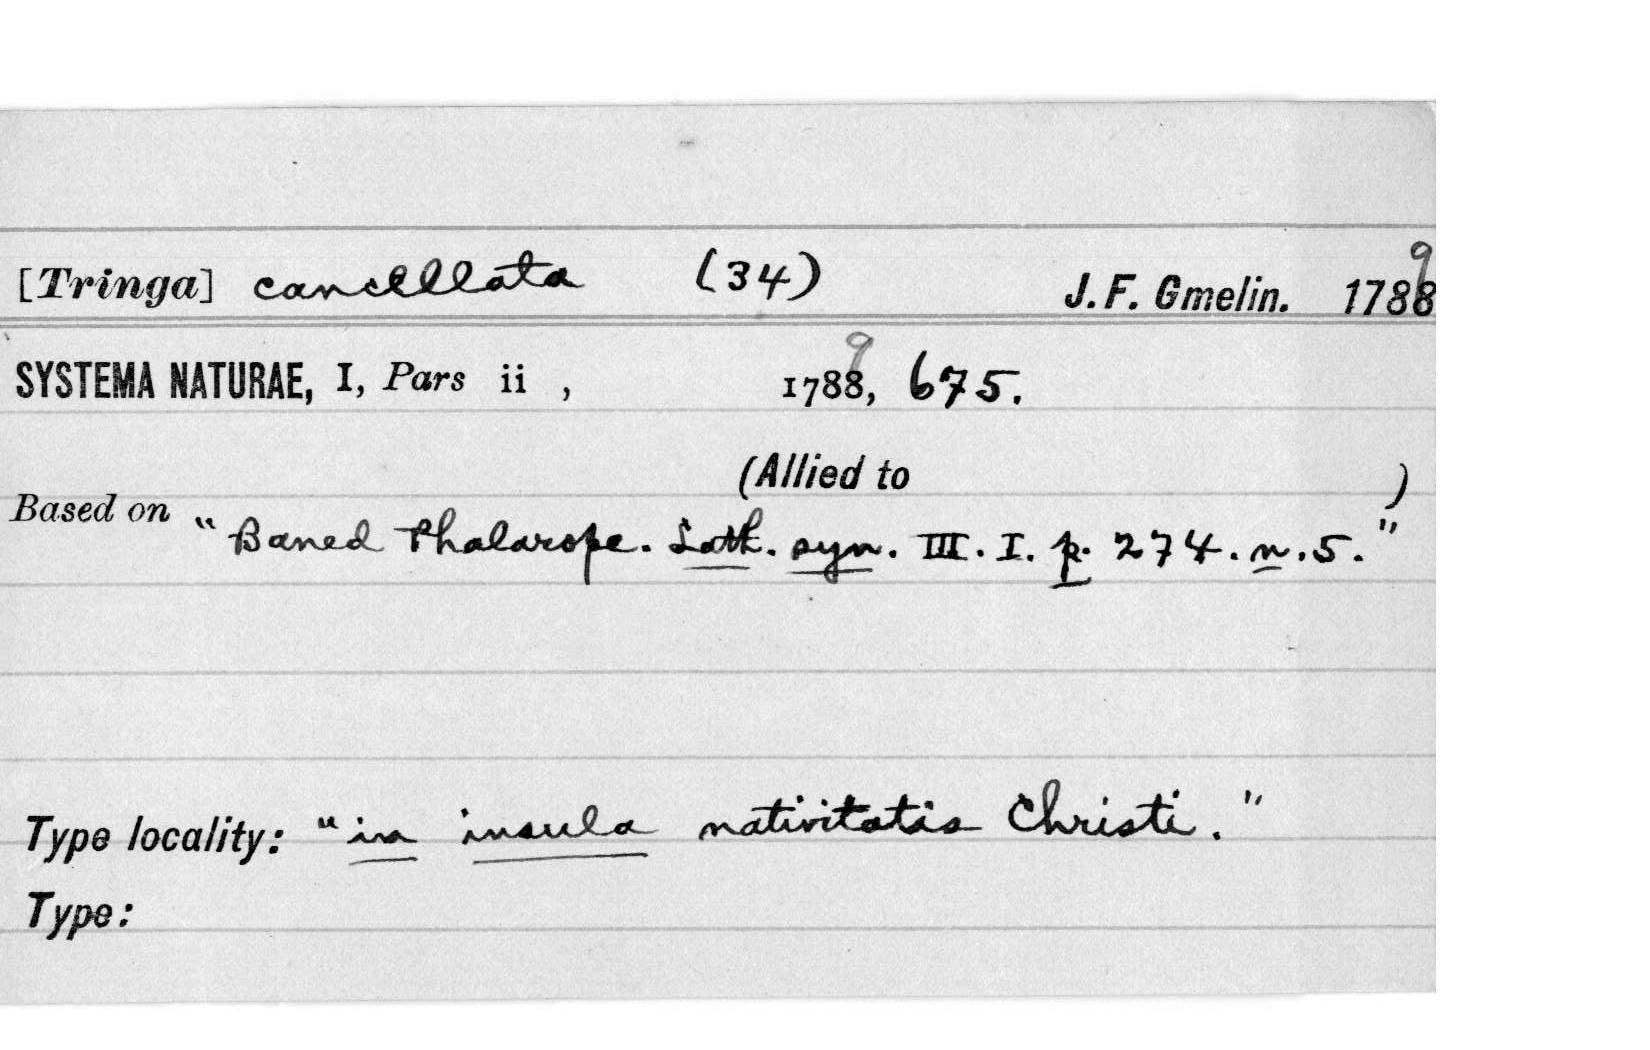 [Tringa] cancellata (34) J. F. Gmelin. 1788 9
SYSTEMA NATURAE, I, Pars ii , 1788, 9 675.
(Allied to )
Based on "Baned Phalarope. Lath. syn. III. I. p. 274. n. 5."
Type locality: "in insula nativitatis Christi."
Type: